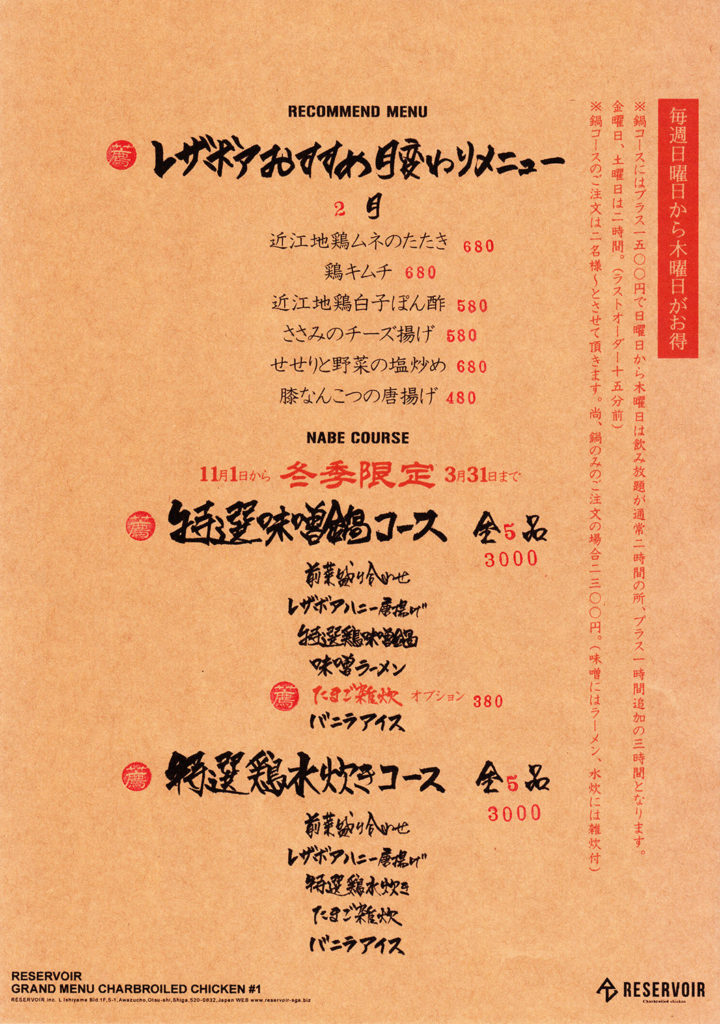 RECOMMEND MENU
薦 レザボアおすすめ月変わりメニュー
2 月
近江地鶏ムネのたたき 680
鶏キムチ 680
近江地鶏白子ぽん酢 580
ささみのチーズ揚げ 580
せせりと野菜の塩炒め 680
膝なんこつの唐揚げ 480
NABE COURSE
11月1日から 冬季限定 3月31日まで
薦 特選味噌鍋コース 全5品
3000
前菜盛り合わせ
レザボアハニー唐揚げ
特選鶏味噌鍋
味噌ラーメン
薦 たまご雑炊 オプション 380
バニラアイス
薦 特選鶏水炊きコース 全5品
3000
前菜盛り合わせ
レザボアハニー唐揚げ
特選鶏水炊き
たまご雑炊
バニラアイス
毎週日曜日から木曜日がお得
※鍋コースにはプラス一五〇〇円で日曜日から木曜日は飲み放題が通常二時間の所、プラス一時間追加の三時間となります。
金曜日、土曜日は二時間。(ラストオーダー十五分前)
※鍋コースのご注文は二名様〜とさせて頂きます。尚、鍋のみのご注文の場合二三〇〇円。(味噌にはラーメン、水炊には雑炊付)
RESERVOIR
GRAND MENU CHARBROILED CHICKEN #1
RESERVOIR inc. L Ishiyama Bld.1F,5-1,Awazucho,Otsu-shi,Shiga,520-0832,Japan WEB www.reservoir-sga.biz
RESERVOIR
Charbroiled chicken